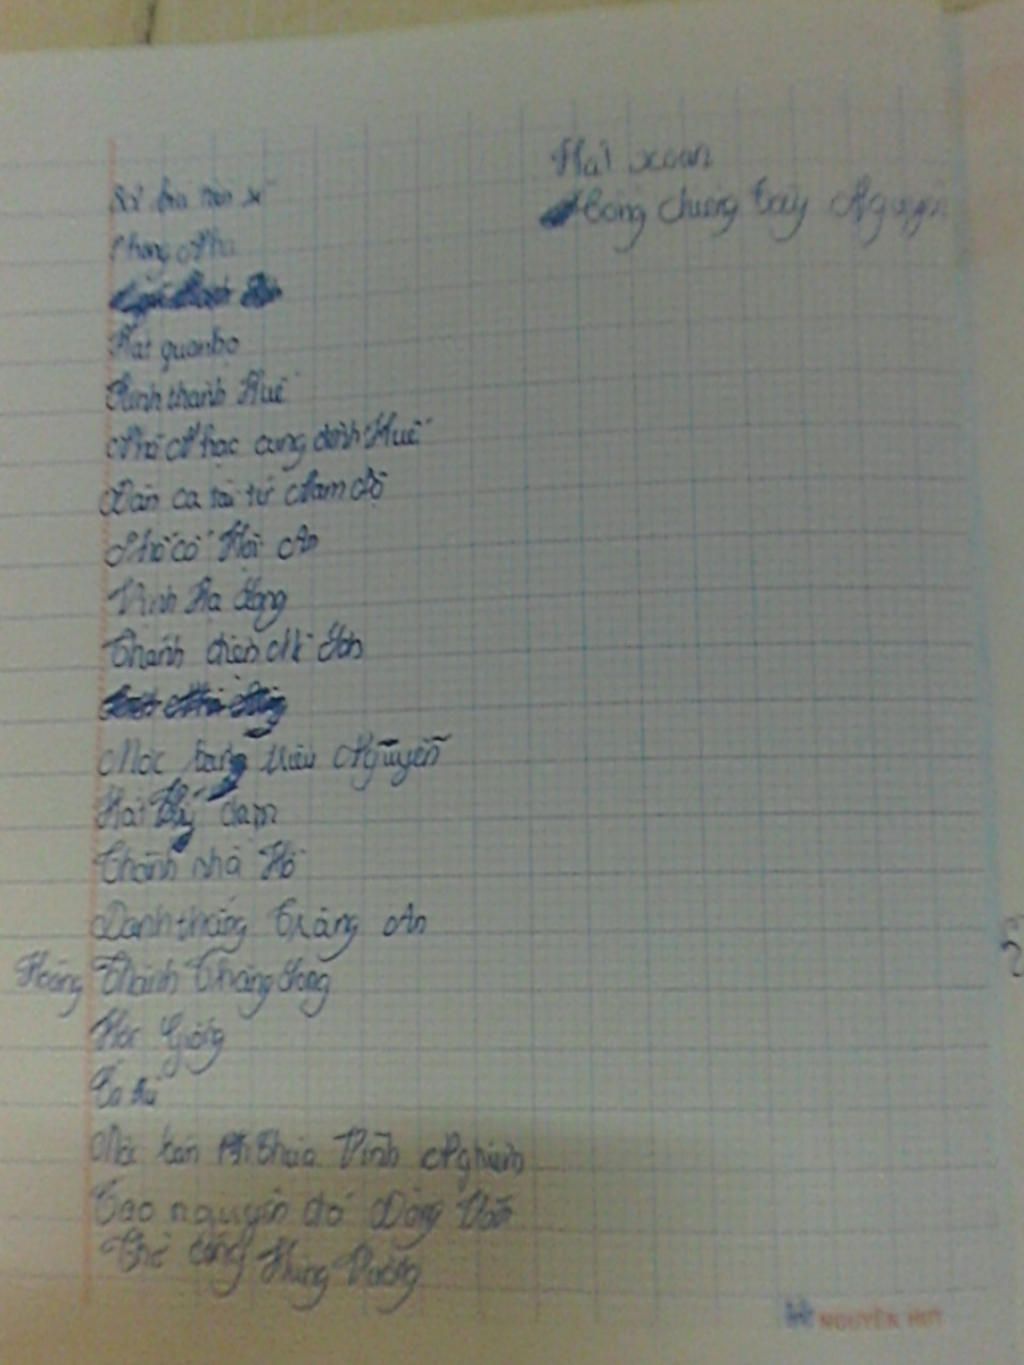 Hát xoan
Cồng chiêng Tây Nguyên
Phong Nha
Hát quan họ
Kinh thành Huế
Nhã Nhạc cung đình Huế
Đàn ca tài tử Nam Bộ
Phố cổ Hội An
Vịnh Hạ Long
Thánh địa Mĩ Sơn
Mộc bản triều Nguyễn
Hát dặm
Thành nhà Hồ
Danh thắng Tràng An
Hoàng Thành Thăng Long
Hội Gióng
Ca trù
Mộc bản Vĩnh Nghiêm
Cao nguyên đá Đồng Văn
Thờ cúng Hùng Vương
NGUYÊN HUY